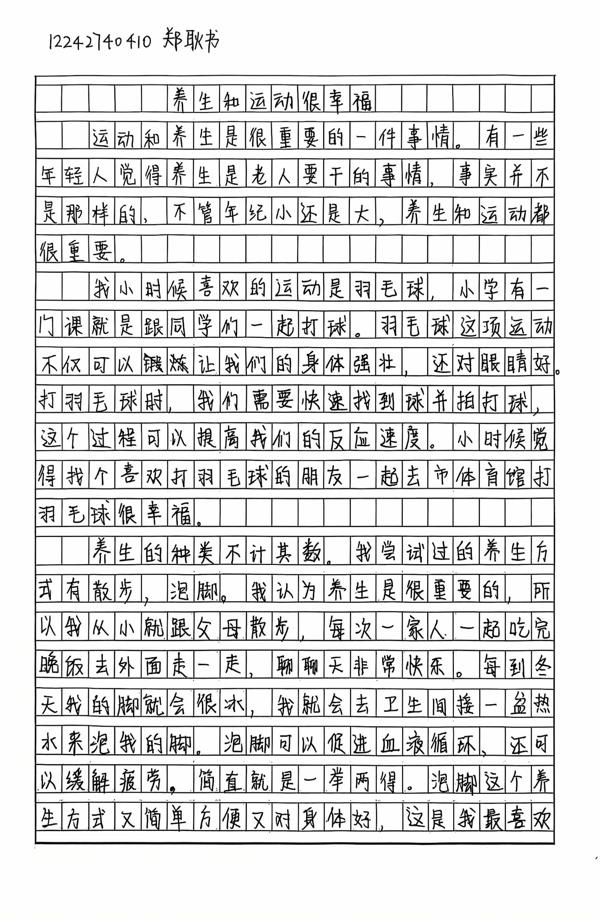 12242740410 郑耿书
养生和运动很幸福
运动和养生是很重要的一件事情。有一些
年轻人觉得养生是老人要干的事情，事实并不
是那样的、不管年纪小还是大，养生和运动都
很重要。
我小时候喜欢的运动是羽毛球，小学有一
门课就是跟同学们一起打球。羽毛球这项运动
不仅可以锻炼让我们的身体强壮，还对眼睛好。
打羽毛球时，我们需要快速找到球并拍打球，
这个过程可以提高我们的反血速度。小时候觉
得找个喜欢打羽毛球的朋友一起去市体育馆打
羽毛球很幸福。
养生的种类不计其数。我尝试过的养生方
式有散步，泡脚。我认为养生是很重要的，所
以我从小就跟父母散步，每次一家人一起吃完
晚饭去外面走一走，聊聊天非常快乐。每到冬
天我的脚就会很冰，我就会去卫生间接一盆热
水来泡我的脚。泡脚可以促进血液循环、还可
以缓解疲劳。简直就是一举两得。泡脚这个养
生方式又简单方便又对身体好，这是我最喜欢